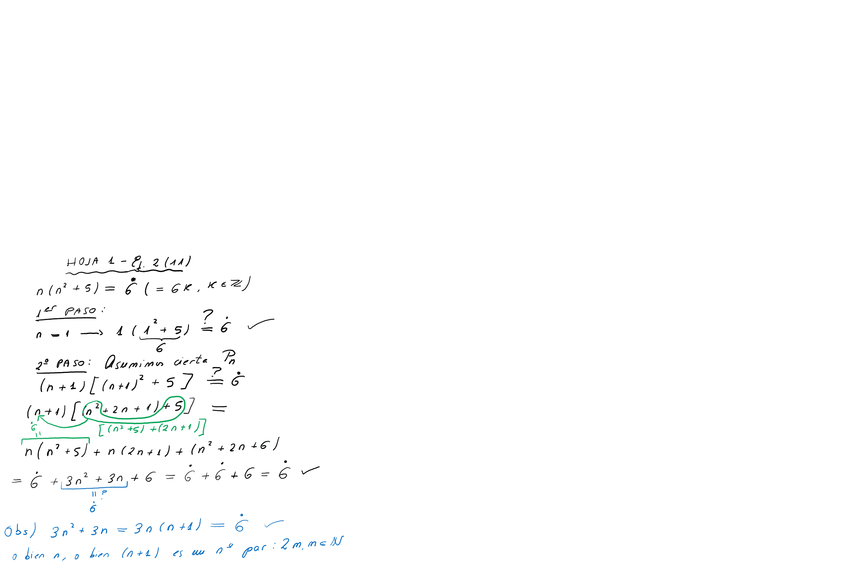 HOJA 1 - Ej. 2 (11)
n(n² + 5) = 6̇ (= 6K, K ∈ ℤ)
1er PASO:
n = 1 → 1 (1² + 5) =? 6̇ ✓
6
2º PASO: Asumimos cierta Pn
(n+1) [(n+1)² + 5] =? 6̇
(n+1) [n² + 2n + 1) + 5] =
[(n² + 5) + (2n+1)]
6̇
=
n(n² + 5) + n(2n+1) + (n² + 2n + 6)
= 6̇ + 3n² + 3n + 6 = 6̇ + 6̇ + 6 = 6̇ ✓
= ?
6̇
Obs) 3n² + 3n = 3n(n+1) = 6̇ ✓
o bien n, o bien (n+1) es un nº par: 2m, m ∈ ℕ